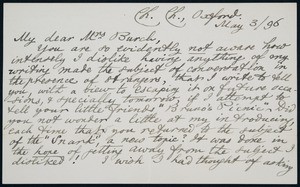 Ch. Ch., Oxford.
May 3/96
My dear Mrs Burch,
You are so evidently not aware how
intensely I dislike having anything of my
writing made the subject of conversation in
the presence of strangers, that I write to tell
you, with a view to escaping it on future occa-
sions, & specially tomorrow, if I attempt to
tell your little friends "Bruno's Picnic." Did
you not wonder a little at my introducing,
each time that you returned to the subject
of the "Snark", a new topic? It was done in
the hope of getting away from the subject I
disliked! I wish I had thought of asking